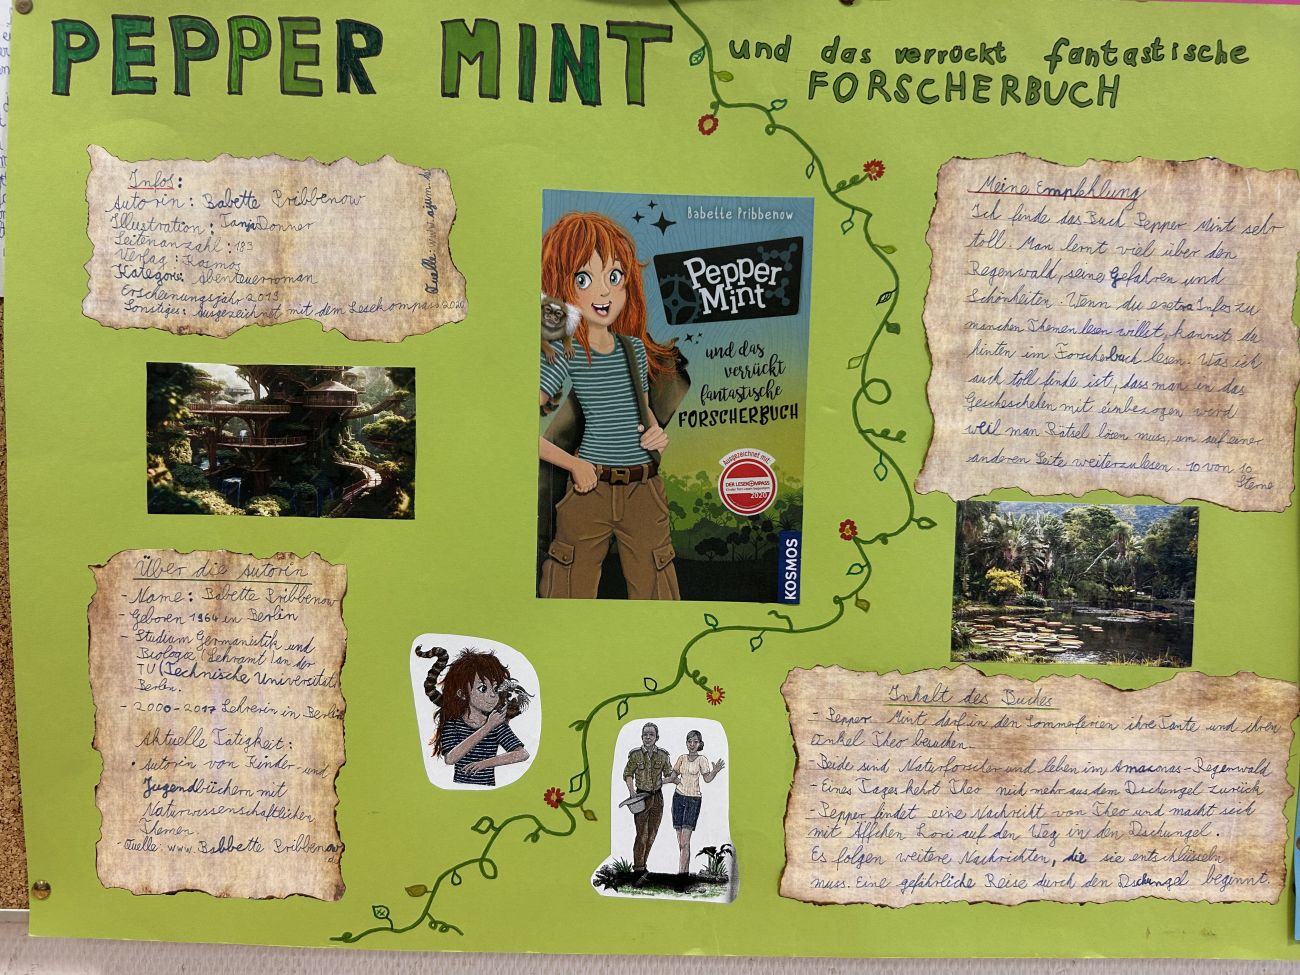 PEPPER MINT und das verrückt fantastische
FORSCHERBUCH
Infos:
Autorin: Babette Pribbenow
Illustration: Tanja Donner
Seitenanzahl: 183
Verlag: Kosmos
Kategorie: Abenteuerroman
Erscheinungsjahr 2019
Sonstiges: Ausgezeichnet mit dem Lesekompass 2020
Quelle: www.ajum.
Babette Pribbenow
Pepper
Mint
und das
verrückt
fantastische
FORSCHERBUCH
Ausgezeichnet mit:
DER LESEKOMPASS
2020
KOSMOS
Meine Empfehlung
Ich finde das Buch Pepper Mint sehr
toll. Man lernt viel über den
Regenwald, seine Gefahren und
Schönheiten. Wenn du exetra Infos zu
manchen Themen lesen willst, kannst du
hinten im Forscherbuch lesen. Was ich
auch toll finde ist, dass man in das
Gescheschehen mit einbezogen werd
weil man Rätsel lösen muss, um auf einer
anderen Seite weiterzulesen. 10 von 10
Sterne
Über die Autorin
- Name: Babette Pribbenow
- Geboren 1964 in Berlin
- Studium Germanistik und
Biologie (Lehramt) an der
TU (Technische Universität)
Berlin.
- 2000-2017 Lehrerin in Berlin
Aktuelle Tätigkeit:
• Autorin von Kinder- und
Jugendbüchern mit
Naturwissenschaftlichen
Themen.
- Quelle: www. Babbette Pribbenow
Inhalt des Buches
- Pepper Mint darf in den Sommerferien ihre Tante und ihren
Onkel Theo besuchen.
- Beide sind Naturforscher und leben im Amazonas-Regenwald
- Eines Tages kehrt Theo nich mehr aus dem Dschungel zurück
- Pepper findet eine Nachricht von Theo und macht sich
mit Äffchen Lori auf den Weg in den Dschungel.
Es folgen weitere Nachrichten, die sie entschlüsseln
muss. Eine gefährliche Reise durch den Dschungel beginnt.